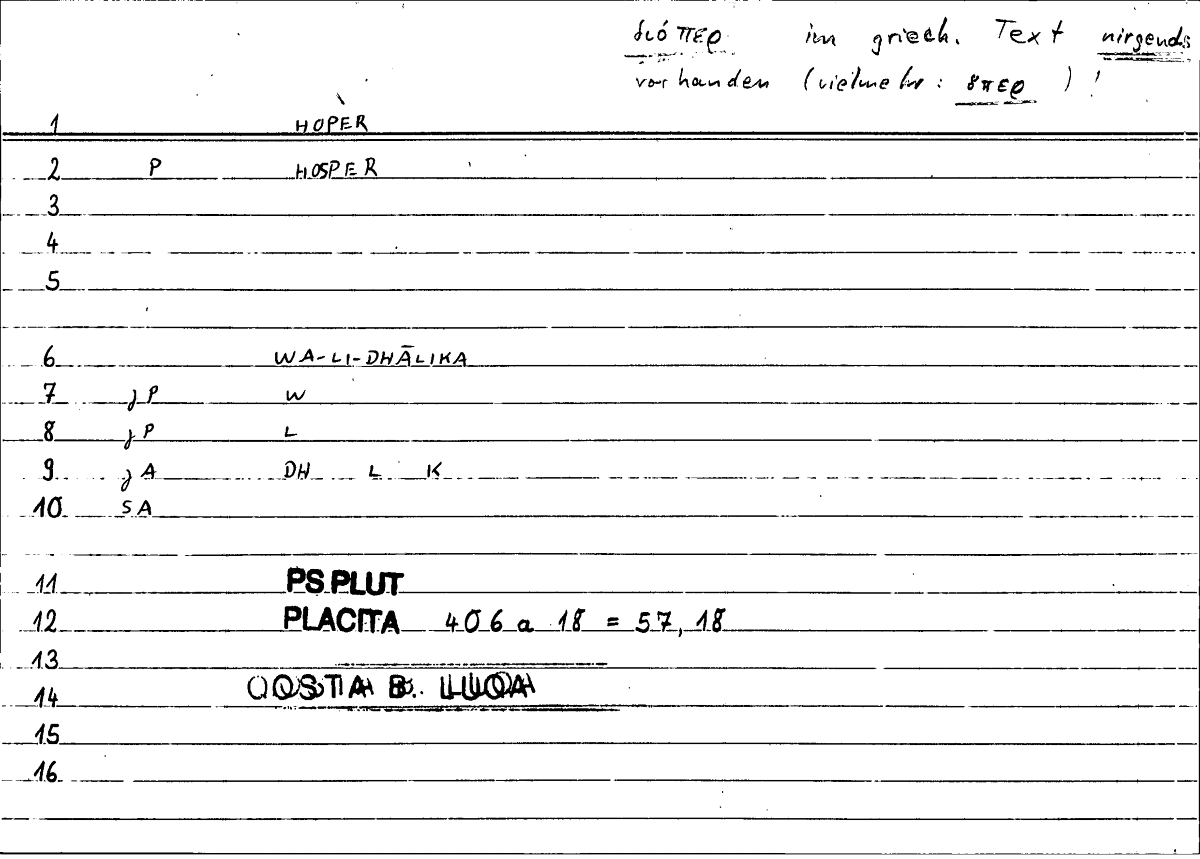 διόπερ im griech. Text nirgends
vorhanden (vielmehr: ὅπερ )!
1 HOPER
2 P HOSPER
3
4
5
6 WA-LI-DHĀLIKA
7 jP W
8 jP L
9 jA DH L K
10 SA
11 PS.PLUT
12 PLACITA 406 a 18 = 57,18
13
14 QOSTA B. LUQA
15
16